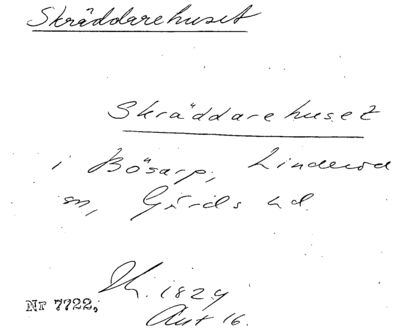 Skräddarehuset
Skräddarehuset
i Bösarp, Linderöd
sn, Gärds hd.
1829
Nr 7722, Akt 16.